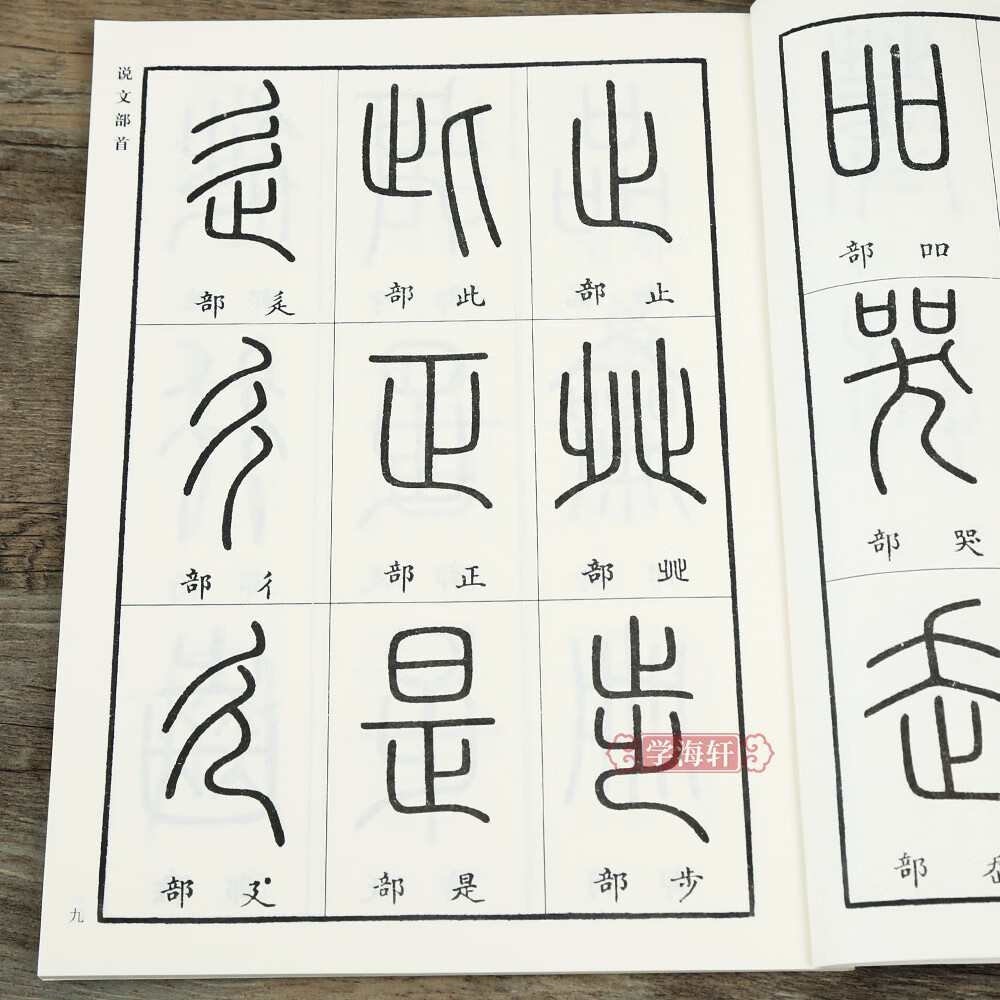 说文部首
止部
癶部
步部
此部
正部
是部
辵部
彳部
廴部
九
吅部
哭部
部
学海轩